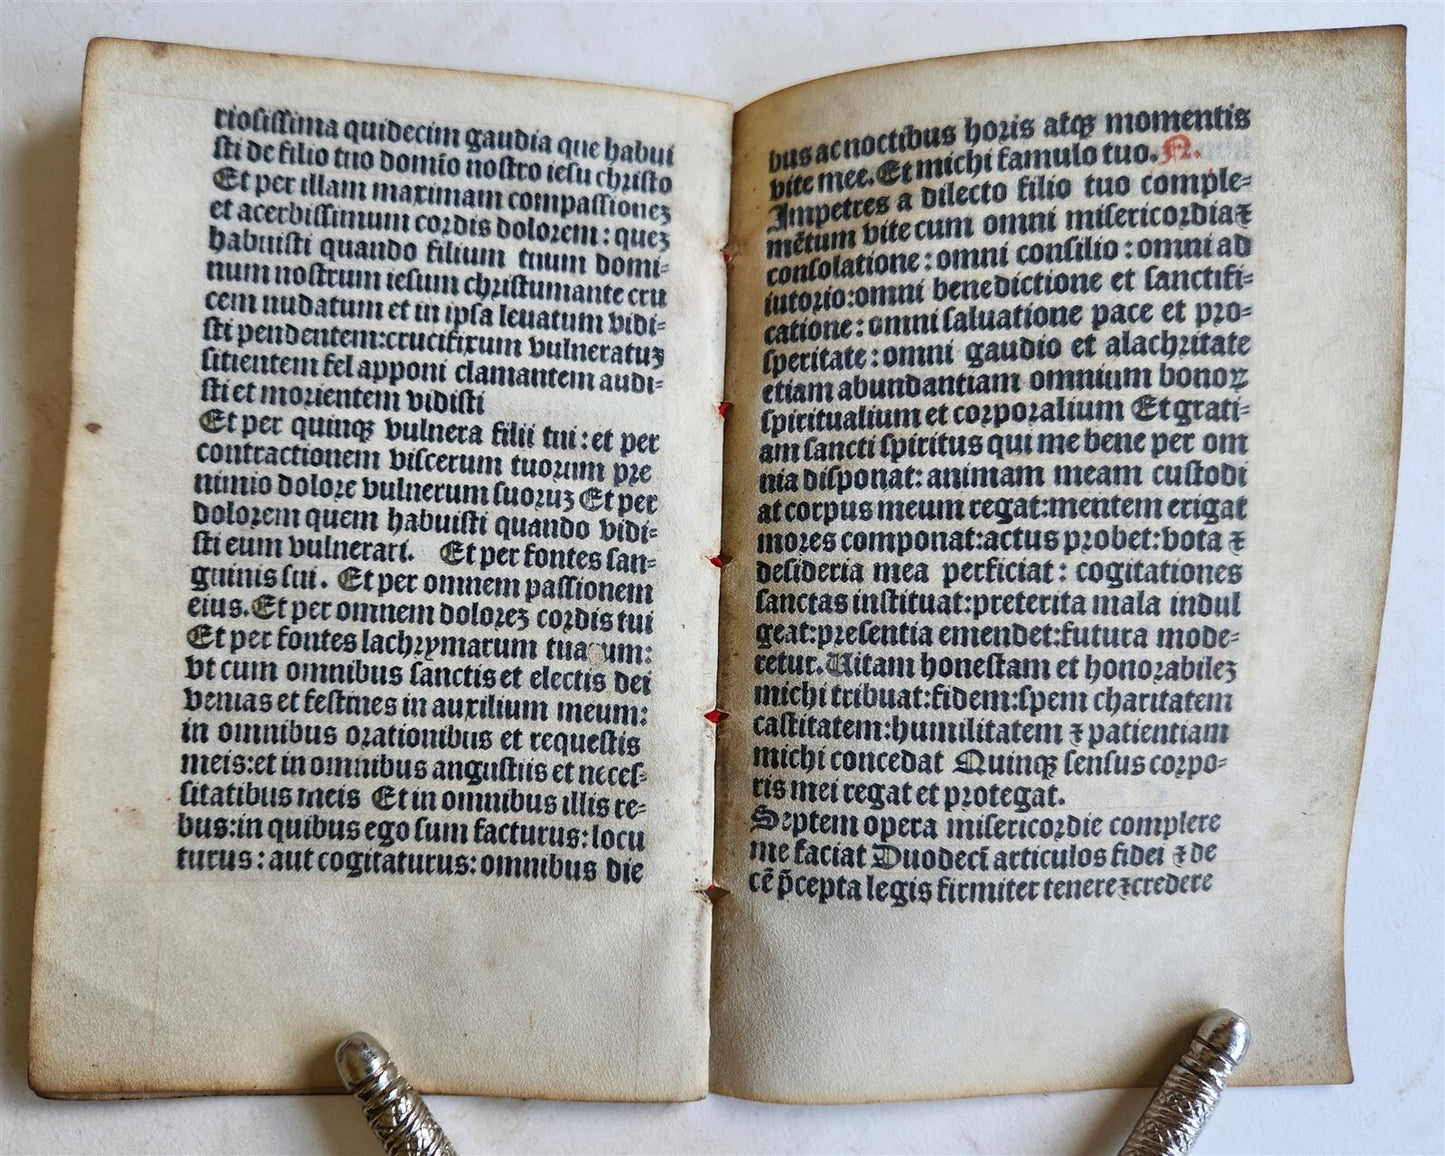 riosissima quidecim gaudia que habui
sti de filio tuo domio nostro iesu christo
Et per illam maximam compassionez
et acerbissimum cordis dolorem : quez
habuisti quando filium tuum domi=
num nostrum iesum christumante cru
cem nudatum et in ipsa leuatum vidi=
sti pendentem:crucifixum vulneratuz
sitientem fel apponi clamantem audi=
sti et morientem vidisti
Et per quinqꝫ vulnera filii tui : et per
contractionem viscerum tuorum pre
nimio dolore vulnerum suoruz Et per
dolorem quem habuisti quando vidi=
sti eum vulnerari. Et per fontes san=
guinis sui. Et per omnem passionem
eius. Et per omnem dolorez cordis tui
Et per fontes lachrymarum tuarum:
vt cum omnibus sanctis et electis dei
venias et festines in auxilium meum:
in omnibus orationibus et requestis
meis:et in omnibus angustiis et neces=
sitatibus meis Et in omnibus illis re=
bus:in quibus ego sum facturus: locu
turus : aut cogitaturus: omnibus die
bus ac noctibus horis atqꝫ momentis
vite mee. Et michi famulo tuo. N.
Impetres a dilecto filio tuo comple=
mẽtum vite cum omni misericordia⁊
consolatione : omni consilio : omni ad
iutorio:omni benedictione et sanctifi=
catione : omni saluatione pace et pro=
speritate : omni gaudio et alachritate
etiam abundantiam omnium bonoꝝ
spiritualium et corporalium Et grati=
am sancti spiritus qui me bene per om
nia disponat: animam meam custodi
at corpus meum regat:mentem erigat
mores componat:actus probet:vota ⁊
desideria mea perficiat : cogitationes
sanctas instituat:preterita mala indul
geat:presentia emendet:futura mode=
retur. Uitam honestam et honorabilez
michi tribuat:fidem:spem charitatem
castitatem:humilitatem ⁊ patientiam
michi concedat Quinqꝫ sensus corpo=
ris mei regat et protegat.
Septem opera misericordie complere
me faciat Duodecĩ articulos fidei ⁊ de
cẽ p̃cepta legis firmiter tenere ⁊credere